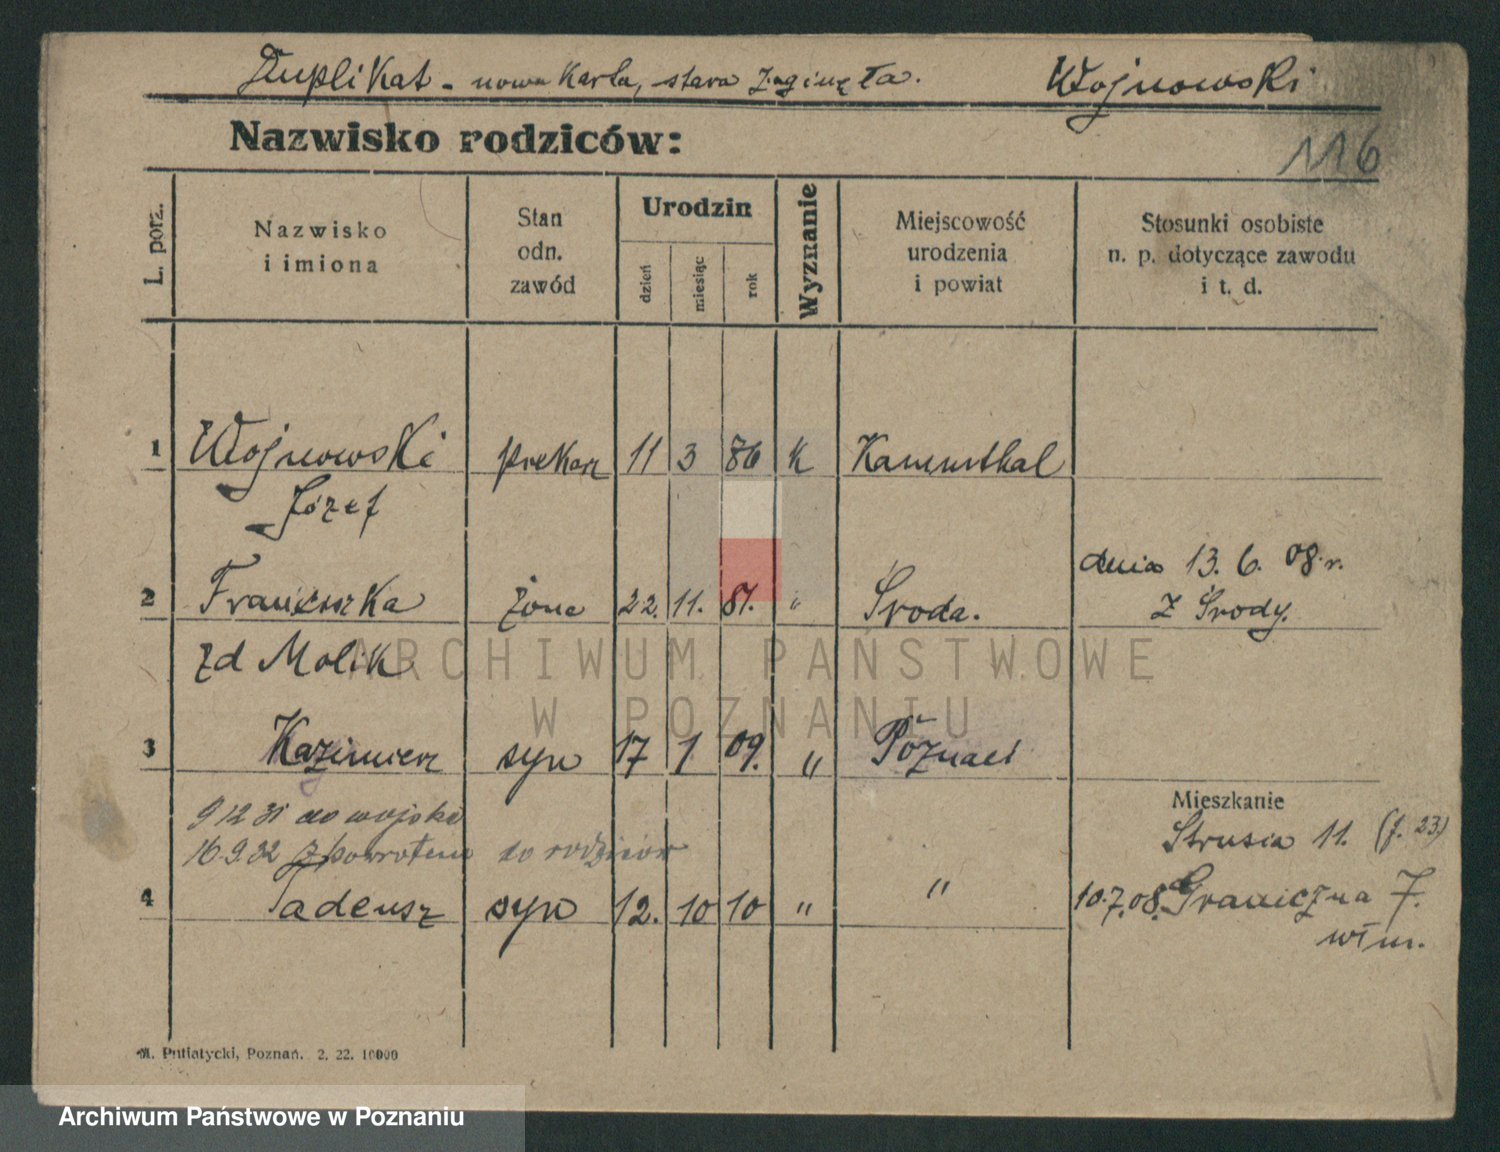 Duplikat - nowa karta, stara zaginęła. Wojnowski
Nazwisko rodziców:
116
L. porz.
Nazwisko
i imiona
Stan
odn.
zawód
Urodzin
dzień
miesiąc
rok
Wyznanie
Miejscowość
urodzenia
i powiat
Stosunki osobiste
n. p. dotyczące zawodu
i t. d.
1 Wojnowski piekarz 11 3 86 K
Józef
dnia 13. 6. 08. r.
2 Franciszka żona 22. 11. 87. " Środa. z Środy.
zd Molik
3 Kazimierz syn 17 1 09. " Poznań
Mieszkanie
9 12 31 do wojska Strusia 11. (f. 23)
16 9 32 z powrotem do rodziców
4 Tadeusz syn 12. 10 10 " " 10.7.08. Graniczna 7.
włm.
M. Putiatycki, Poznań. 2. 22. 10000
ARCHIWUM PAŃSTWOWE
W POZNANIU
Archiwum Państwowe w Poznaniu